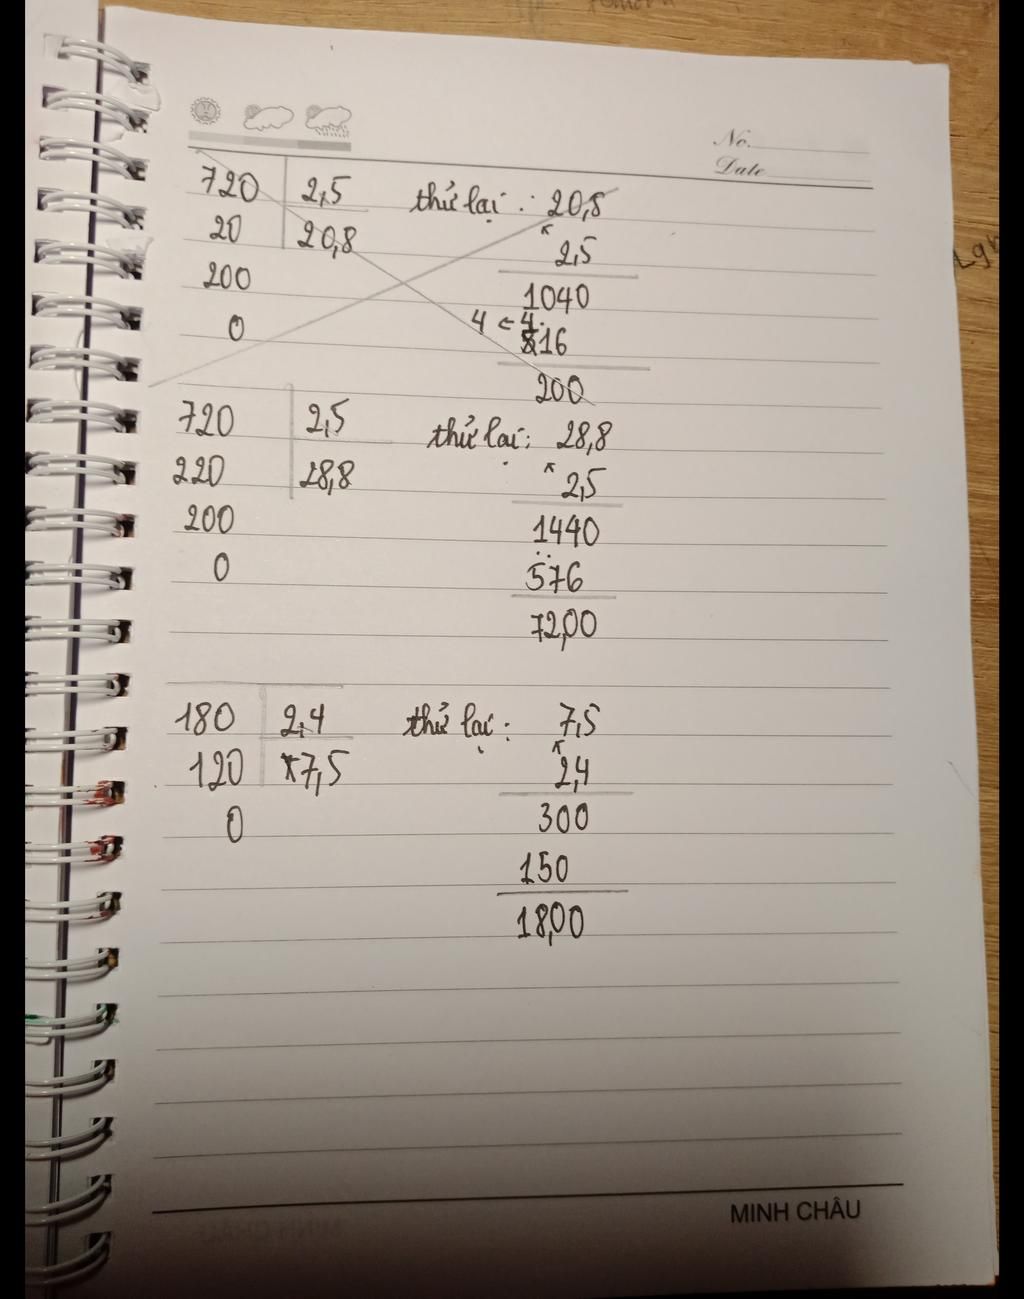 No.
Date
720 2,5 thử lại : 20,8
20 20,8 × 2,5
200 1040
4 < 4
0 16
200
720 2,5 thử lại: 28,8
220 28,8 × 2,5
200 1440
0 576
72,00
180 2,4 thử lại : 7,5
120 ×7,5 × 2,4
0 300
150
18,00
MINH CHÂU